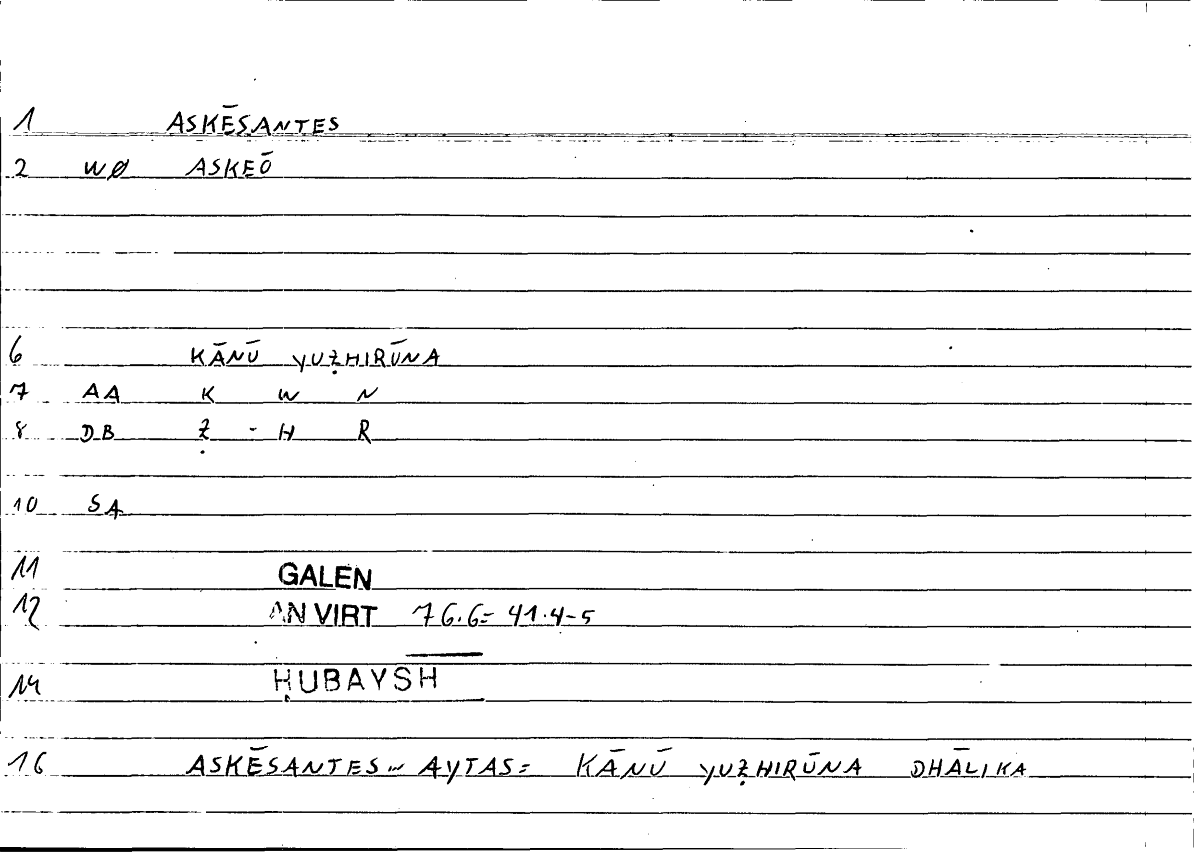 1 ASKĒSANTES
2 WØ ASKEŌ
6 KĀNŪ YUẒHIRŪNA
7 AA K W N
8 DB Ẓ - H R
10 SA
11 GALEN
12 AN VIRT 76.6= 41.4-5
14 ḤUBAYSH
16 ASKĒSANTES.. AYTAS= KĀNŪ YUẒHIRŪNA DHĀLIKA